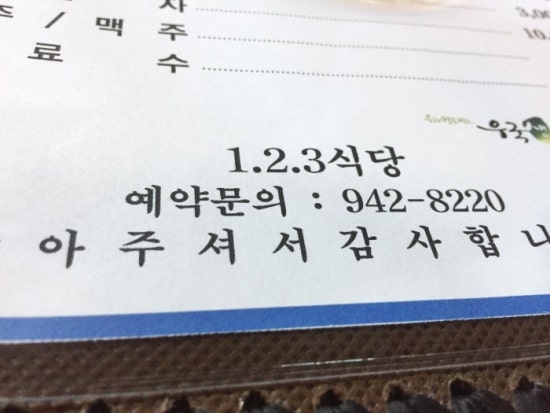 차
주 / 맥 주
료 수
우국생
1.2.3식당
예약문의 : 942-8220
아 주 셔 서 감 사 합 니